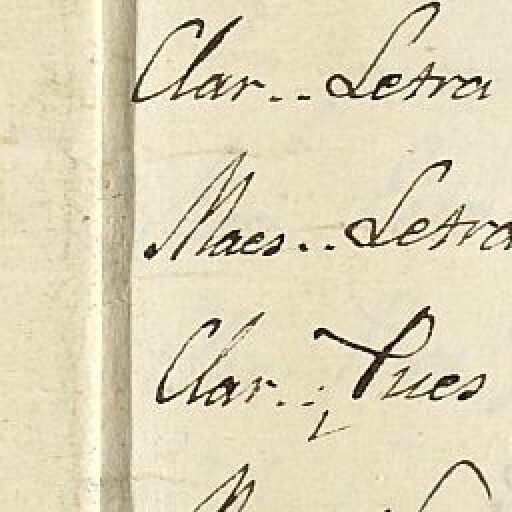 Clar.. Letra
Maes.. Letra
Clar.. Pues